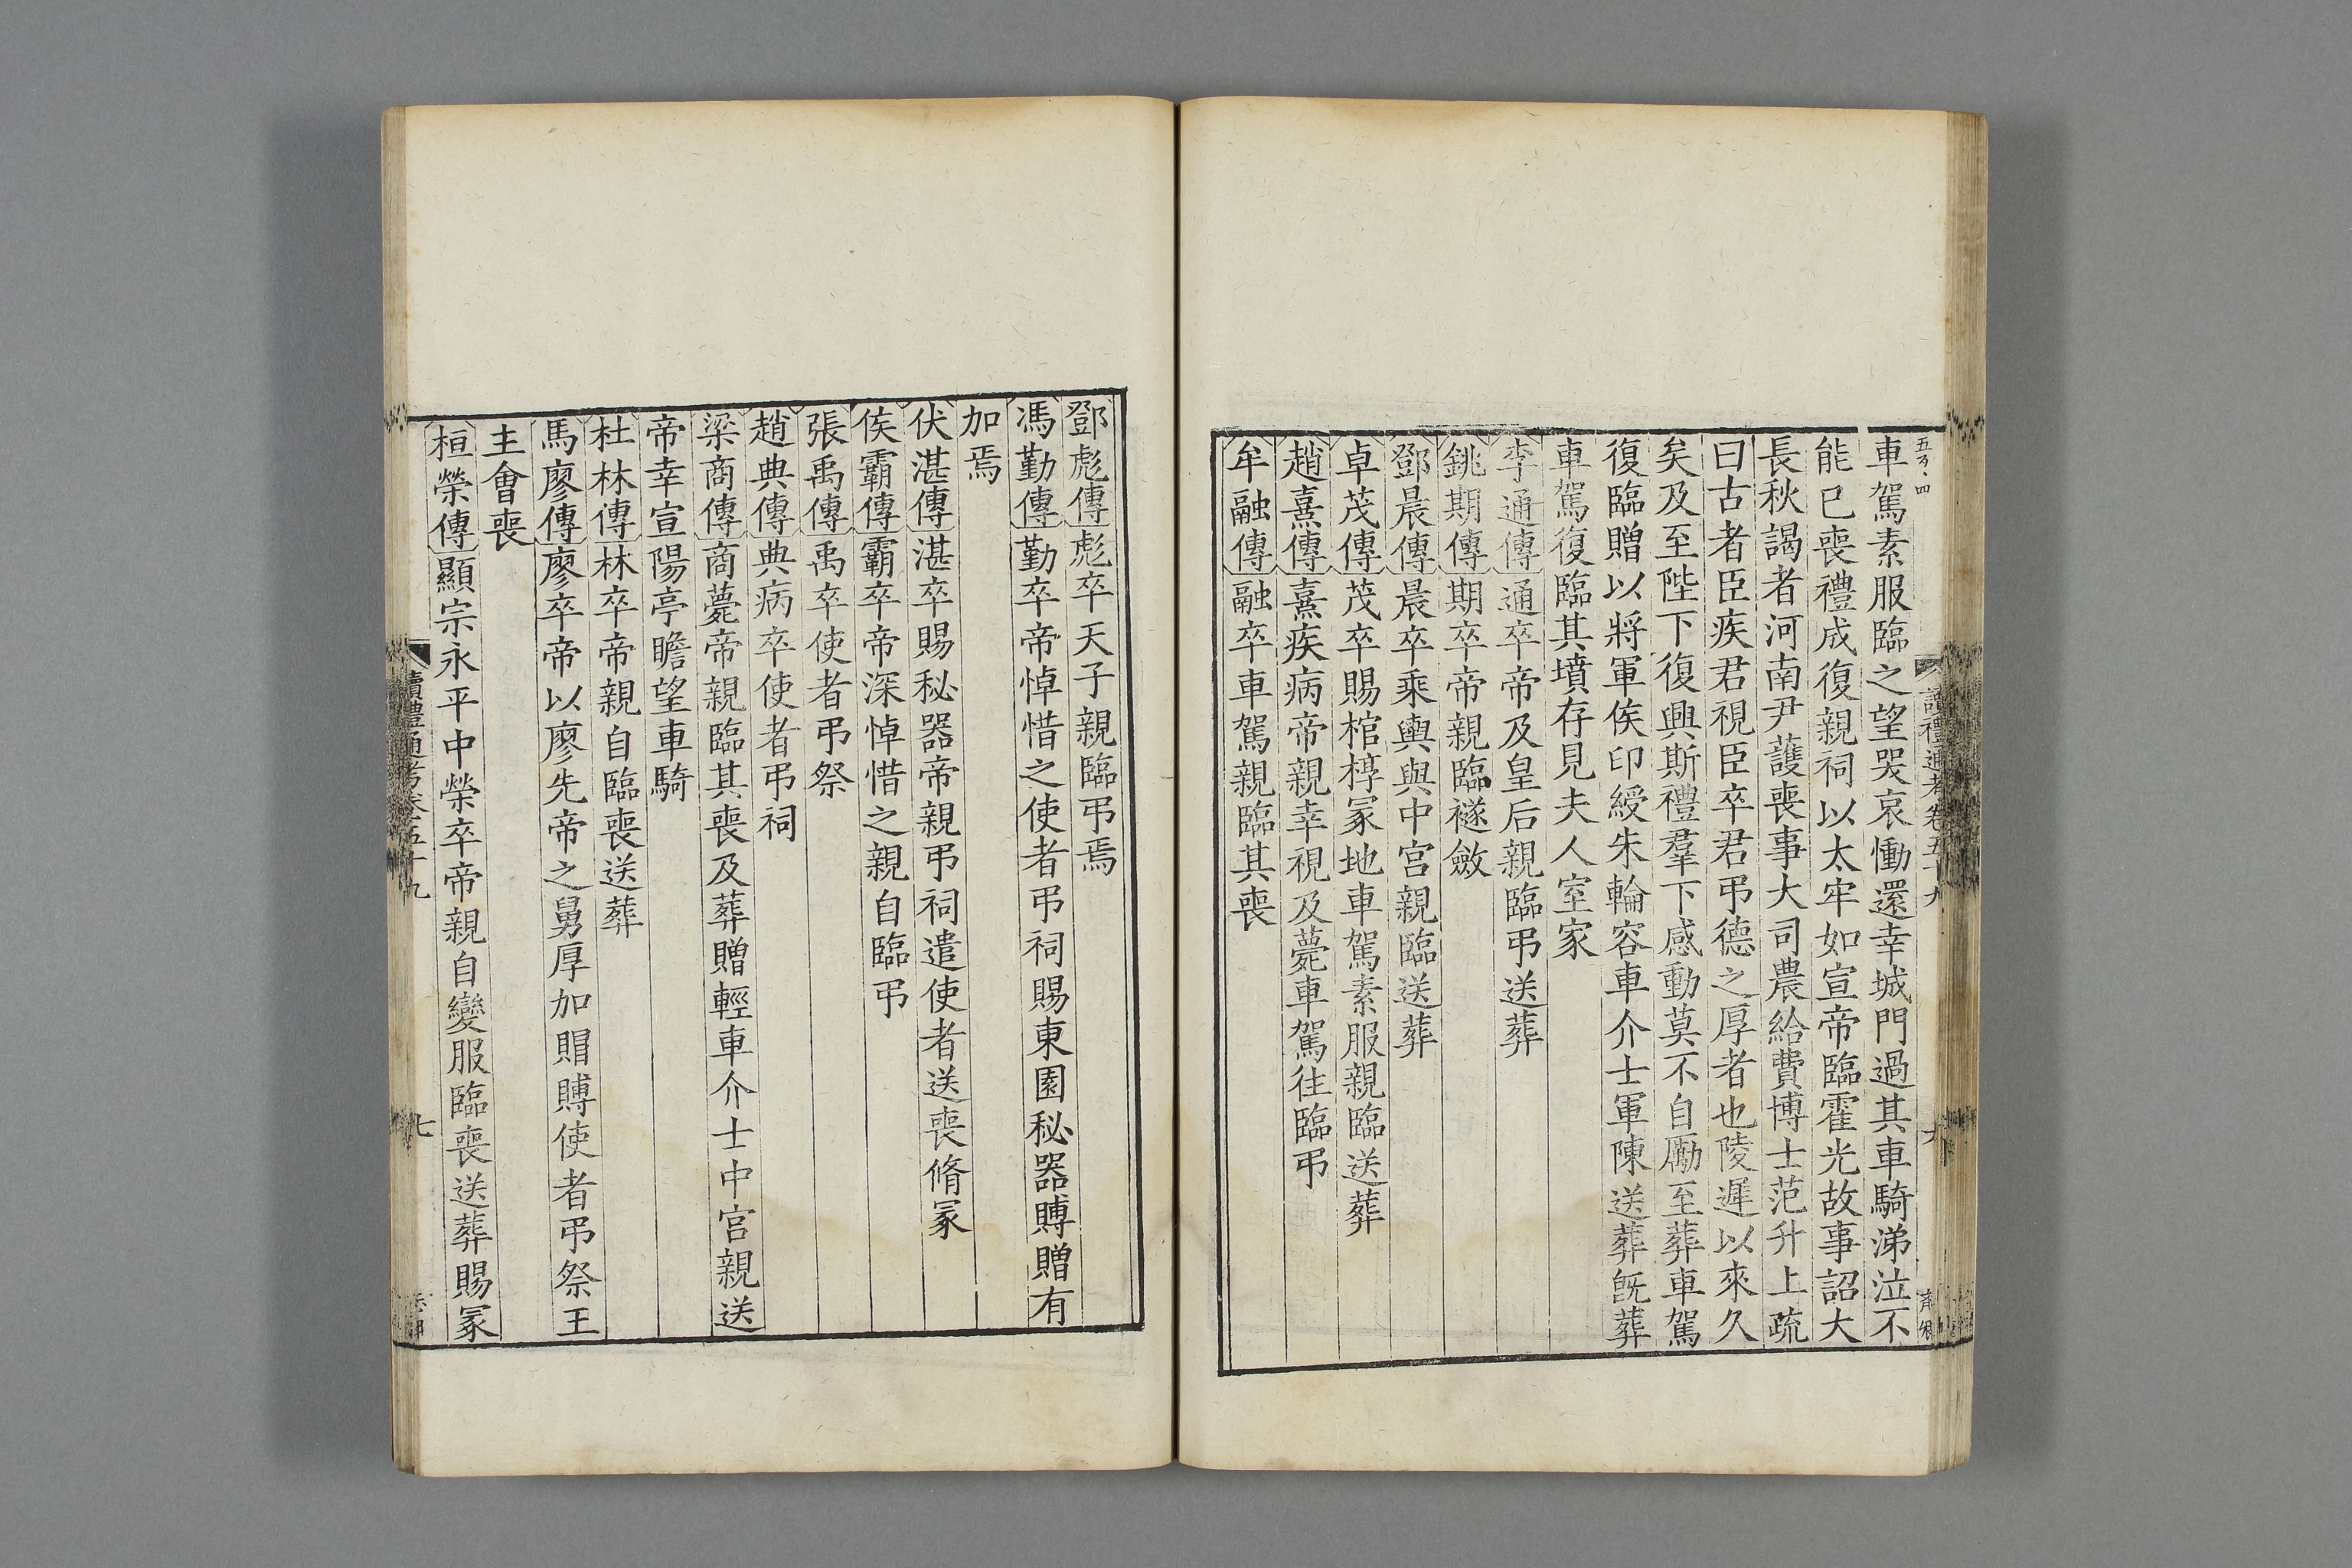 車駕素服臨之望哭哀慟還幸城門過其車騎涕泣不
能已喪禮成復親祠以太牢如宣帝臨霍光故事詔大
長秋謁者河南尹護喪事大司農給費博士范升上疏
曰古者臣疾君視臣卒君弔德之厚者也陵遲以來久
矣及至陛下復興斯禮羣下感動莫不自勵至葬車駕
復臨贈以將軍侯印綬朱輪容車介士軍陳送葬旣葬
車駕復臨其墳存見夫人室家
李通傳通卒帝及皇后親臨弔送葬
銚期傳期卒帝親臨襚斂
鄧晨傳晨卒乘輿與中宮親臨送葬
卓茂傳茂卒賜棺椁冢地車駕素服親臨送葬
趙憙傳憙疾病帝親幸視及薨車駕往臨弔
牟融傳融卒車駕親臨其喪
鄧彪傳彪卒天子親臨弔焉
馮勤傳勤卒帝悼惜之使者弔祠賜東園秘器賻贈有
加焉
伏湛傳湛卒賜秘器帝親弔祠遣使者送喪脩冢
侯霸傳霸卒帝深悼惜之親自臨弔
張禹傳禹卒使者弔祭
趙典傳典病卒使者弔祠
梁商傳商薨帝親臨其喪及葬贈輕車介士中宮親送
帝幸宣陽亭瞻望車騎
杜林傳林卒帝親自臨喪送葬
馬廖傳廖卒帝以廖先帝之舅厚加賵賻使者弔祭王
主會喪
桓榮傳顯宗永平中榮卒帝親自變服臨喪送葬賜冢
讀禮通考卷五十九
七